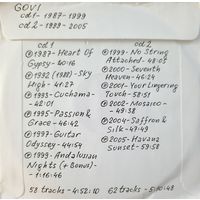 GOVI
cd1 - 1987-1999
cd2 - 1999-2005
cd1
℗ 1987-Heart Of
Gypsy - 40:16
℗ 1992 (1988)-Sky
High - 41:27
℗ 1993-Cuchama-
- 42:01
℗ 1995-Passion &
Grace - 46:42
℗ 1997-Guitar
Odyssey - 44:54
℗ 1999-Andalusian
Nights (+ Bonus) -
- 1:16:46
58 tracks - 4:52:10
cd2
℗ 1999-No String
Attached - 48:05
℗ 2000-Seventh
Heaven - 46:24
℗ 2001-Your Lingering
Touch - 58:51
℗ 2002-Mosaico -
- 49:38
℗ 2004-Saffron &
Silk - 47:49
℗ 2005-Havana
Sunset - 59:58
62 tracks - 5:10:48